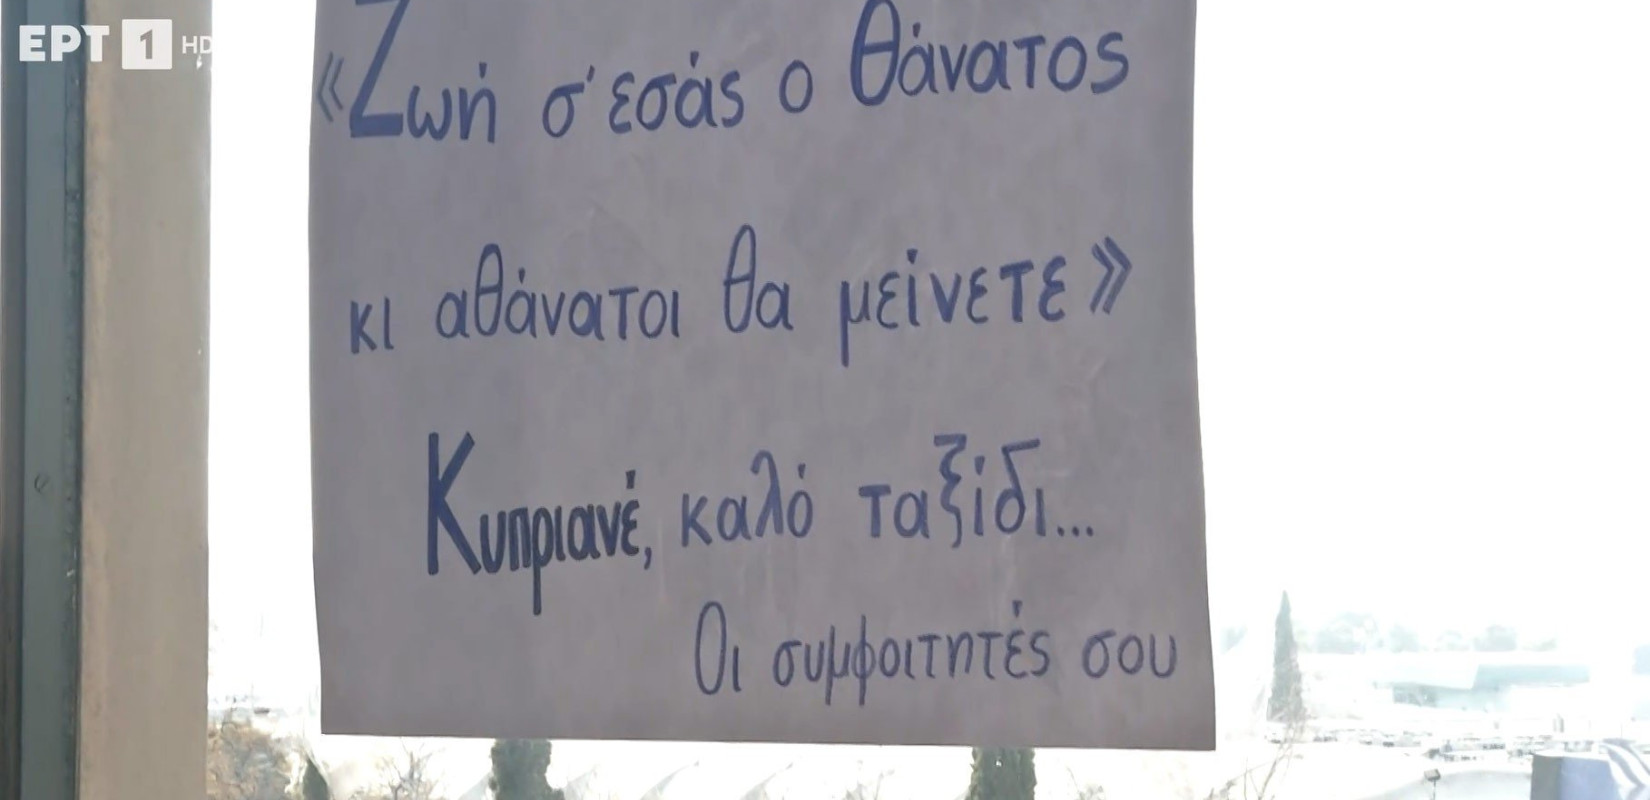 ΕΡΤ 1 HD
«Ζωή σ' εσάς ο θάνατος
κι αθάνατοι θα μείνετε»
Κυπριανέ, καλό ταξίδι...
Οι συμφοιτητές σου